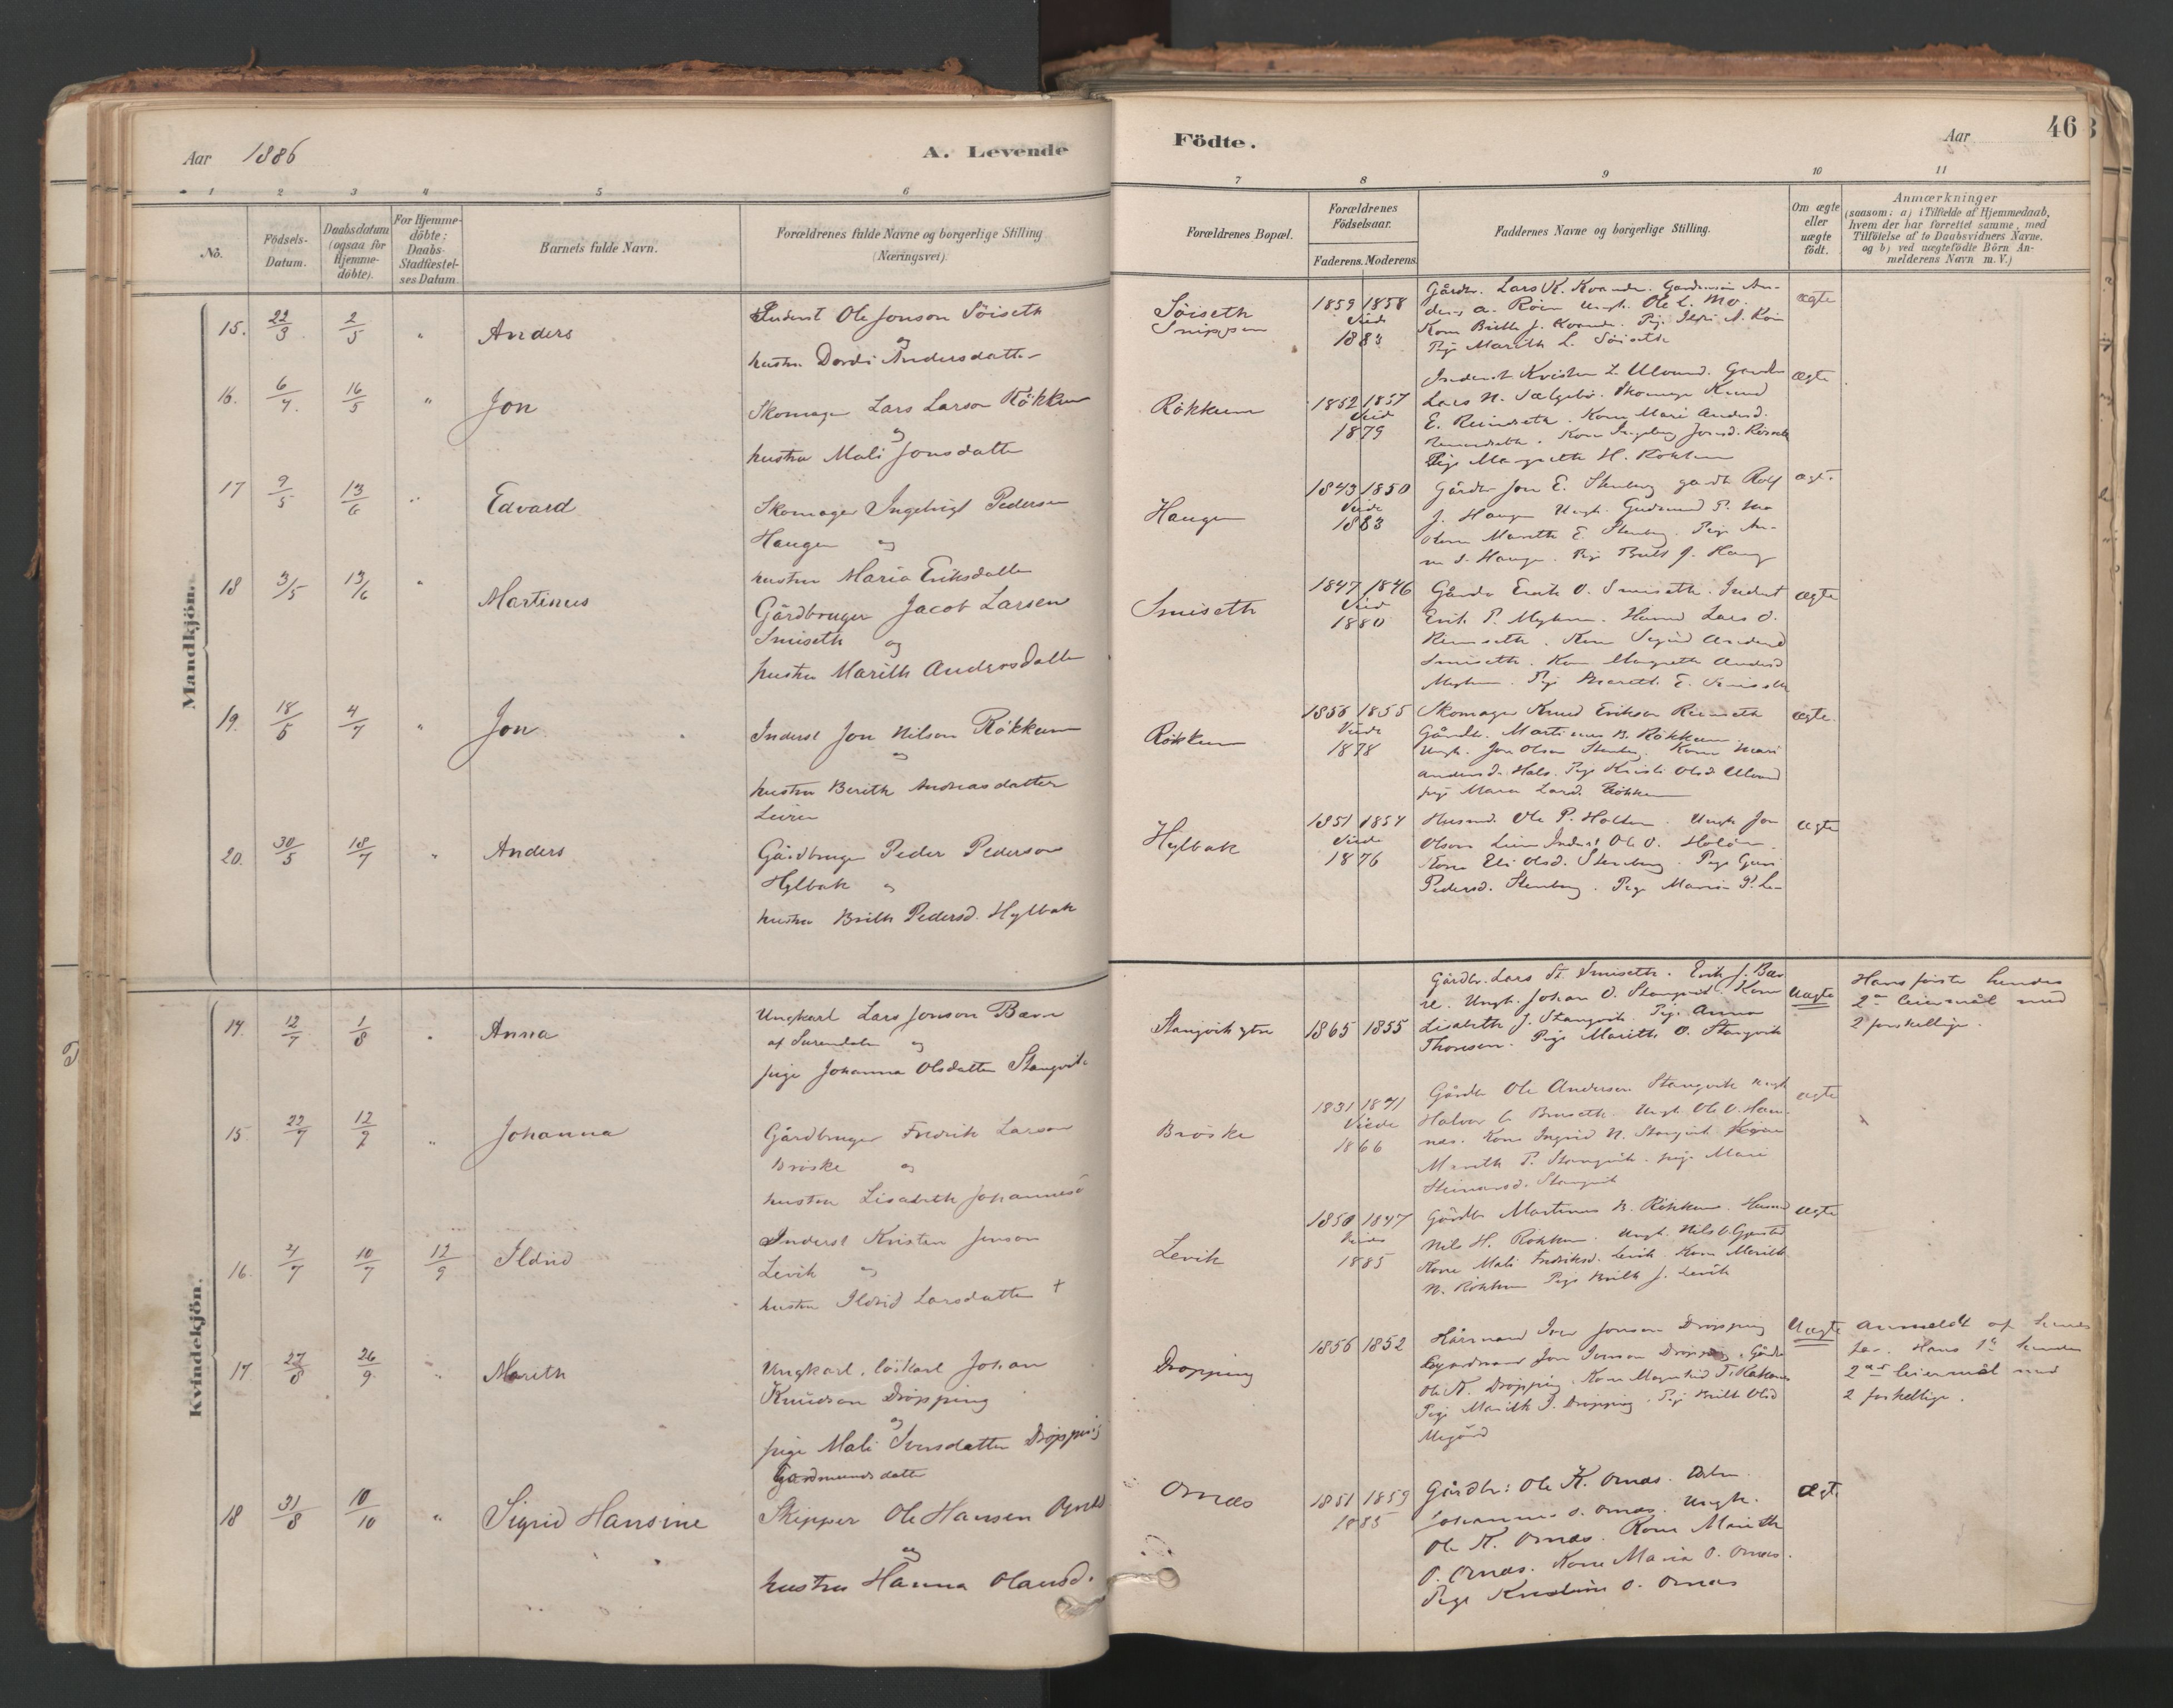 Aar 1886
A. Levende
Födte.
Aar
46
1 2 3 4 5 6 7 8 9 10 11
No.
Födsels-
Datum.
Daabsdatum
(ogsaa for
Hjemme-
döbte).
For Hjemme-
döbte:
Daabs-
Stadfæstel-
ses Datum
Barnets fulde Navn.
Forældrenes fulde Navne og borgerlige Stilling
(Næringsvei).
Forældrenes Bopæl.
Forældrenes
Födselsaar.
Faderens. Moderens.
Faddernes Navne og borgerlige Stilling.
Om ægte
eller
uægte
födt.
Anmærkninger
(saasom: a) i Tilfælde af Hjemmedaab,
hvem der har forrettet samme, med
Tilföielse af to Daabsvidners Navne.
og b) ved uægtefödte Börn An-
melderens Navn m. V.)
Mandkjön.
15. 22/3 2/5 " Anders
Inderst Ole Jonson Söiseth
og
hustru Dordi Andersdatter
Söiseth
Snippen
1859 1858
Viede
1883
Gårdbr. Lars K. Kvande.
Ungk. Ole L. Mo.
Kone Brith J. Kvande.
Pige Marith L. Söiseth
ægte
16. 6/4 16/5 " Jon
Skomager Lars Larson Rökkum
og
hustru Mali Jonsdatter
Rökkum
1852 1857
Viede
1879
Inderst Kristen L. Ulvund. Gårdbr
Lars N. Sælgebö. Skomager Knud
E. Reinseth. Kone Mari Andersd.
Kone Ingeborg Jonsd.
Pige Margrethe H. Rökkum
ægte
17 9/5 13/6 " Edvard
Skomager Ingebrigt Pederson
Haugen og
hustru Maria Eriksdatter
Haugen
1843 1850
Viede
1883
Gårdbr Jon E. Stenberg gårdbr Rolf
J. Haugen Ungk. Gudmund P. Mo
Marith E. Stenberg. Pige
Haugen. Pige Brith J. Haug
ægt.
18 3/5 13/6 " Martinus
Gårdbruger Jacob Larsen
Smiseth og
hustru Marith Andersdatter
Smiseth
1847 1846
Viede
1880
Gårdbr Erik O. Smiseth. Inderst
Erik P. Myhren. Husmd Lars O.
Reinseth. Kone Sigrid Andersd
Smiseth. Kone Margrethe Andersd
Myhren. Pige Mareth E. Smiseth
ægte
19. 18/5 4/7 " Jon
Inderst Jon Nilson Rökkum
og
hustru Berith Andreasdatter
Leiren
Rökkum
1856 1855
Viede
1878
Skomager Knud Erikson Reinseth
Gårdbr. Martinus B. Rökkum.
Ungk. Jon Olson Stenberg. Kone Mari
Andersd. Hals. Pige Kristi Olsd. Ulvund
pige Maria Larsd. Rökkum
ægte.
20. 30/5 18/7 " Anders
Gårdbruger Peder Pederson
Hylbak og
hustru Brith Pedersd. Hylbak
Hylbak
1851 1854
Viede
1876
Husmd. Ole P. Holten. Ungk Jon
Olson Inderst Ole O.
Kone Eli Olsd. Stenberg. Pige Guri
Pedersd. Stenberg. Pige Maria P.
ægte
Kvindekjön.
14. 12/7 1/8 " Anna
Ungkarl Lars Jonson Bævre
af Surendalen og
pige Johanna Olsdatter Stangvik
Stangvik ytre
1865 1855
Gårdbr. Lars St. Smiseth. Erik J. Bæv
re. Ungk. Johan O. Stangvik. Kone
Lisabeth J. Stangvik. Pige Anna
Thoresen. Pige Marith O. Stangvik
Uægte
Hans förste hendes
2det leiermål med
2 forskellige.
15. 22/7 12/9 " Johanna
Gårdbruger Fredrik Larson
Bröske og
hustru Lisabeth Johannesd
Bröske
1831 1841
Viede
1866
Gårdbr Ole Anderson Stangvik Ungk
Halvor Bruseth. Ungk. Ole O. Han-
næs. Kone Ingrid N. Stangvik
Marith P. Stangvik. pige Mari
Stangvik
ægte
16. 4/7 10/7 12/9 Ildrid
Inderst Kristen Jonson
Levik og
hustru Ildrid Larsdatter +
Levik
1850 1847
Viede
1885
Gårdbr Martinus B. Rökkum. Husmd
Nils H. Rökkum. Ungk. Nils O.
Kone Mali Fredriksd. Levik. Kone Marith
N. Rökkum Pige Brith J. Levik
ægte
17 27/8 26/9 " Marith
Ungkarl, löskarl Johan
Knudson Dröpping
og
pige Mali Iversdatter Dröpping
Gårdmandsdatter
Dröpping
1856 1852
Kårmand Iver Jonson Dröpping
Gårdmand Jon Iverson Dröpping, Gårdbr
Ole K. Dröpping, Kone Magnhild
Pige Marith I. Dröpping. Pige Brith Olsd
Megård
Uægte
Anmeldt af hendes
far. Hans 1ste hendes
2det leiermål med
2 forskellige.
18 31/8 10/10 " Sigrid Hansine
Skipper Ole Hansen
og
hustru Hanna Olausd.
Ornæs
1851 1859
1885
Gårdbr: Ole K. Ornæs.
Johannes O. Ornæs. Ungk.
Ole K. Ornæs. Kone Marith
O. Ornæs. Kone Maria O. Ornæs.
Pige Kristine O. Ornæs
ægt.